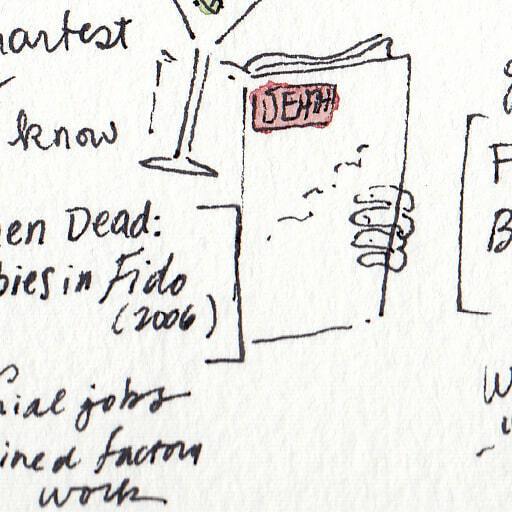 martest
know
JEAH
en Dead:
bies in Fido
(2006)
nial jobs
ined factory
work
F
B
W